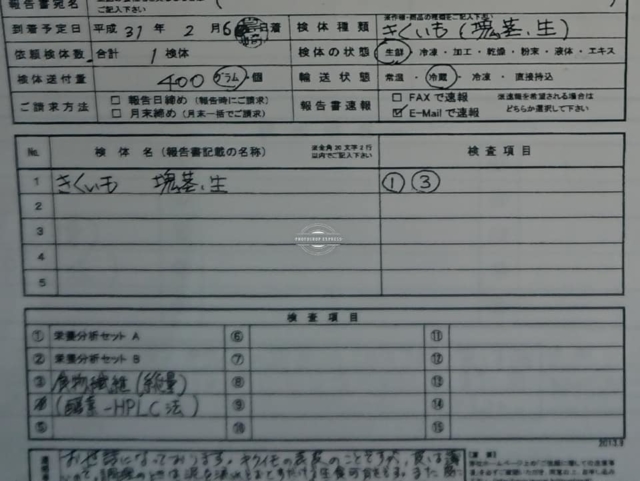 報告書宛名
ご記入下さい
到着予定日 平成 31 年 2 月 6 日着 検体種類 きくいも(塊茎、生)
依頼検体数 合計 1 検体 検体の状態 生鮮・冷凍・加工・乾燥・粉末・液体・エキス
検体送付量 400 グラム・個 輸送状態 常温・冷蔵・冷凍・直接持込
ご請求方法 □ 報告日締め (報告時にご請求) 報告書速報 □ FAXで速報 ※速報を希望される場合は
□ 月末締め (月末一括でご請求) ☑ E-Mailで速報 どちらか選択して下さい
№ 検体名(報告書記載の名称) ※全角30文字2行以内でご記入下さい 検査項目
1 きくいも 塊茎、生 ① ③
2
3
PHOTOSHOP EXPRESS
4
5
検査項目
① 栄養分析セット A ⑥ ⑪
② 栄養分析セット B ⑦ ⑫
③ 食物繊維(総量) ⑧ ⑬
④ (酵素-HPLC法) ⑨ ⑭
⑤ ⑩ ⑮
2013.9
お世話になっております。キクイモの